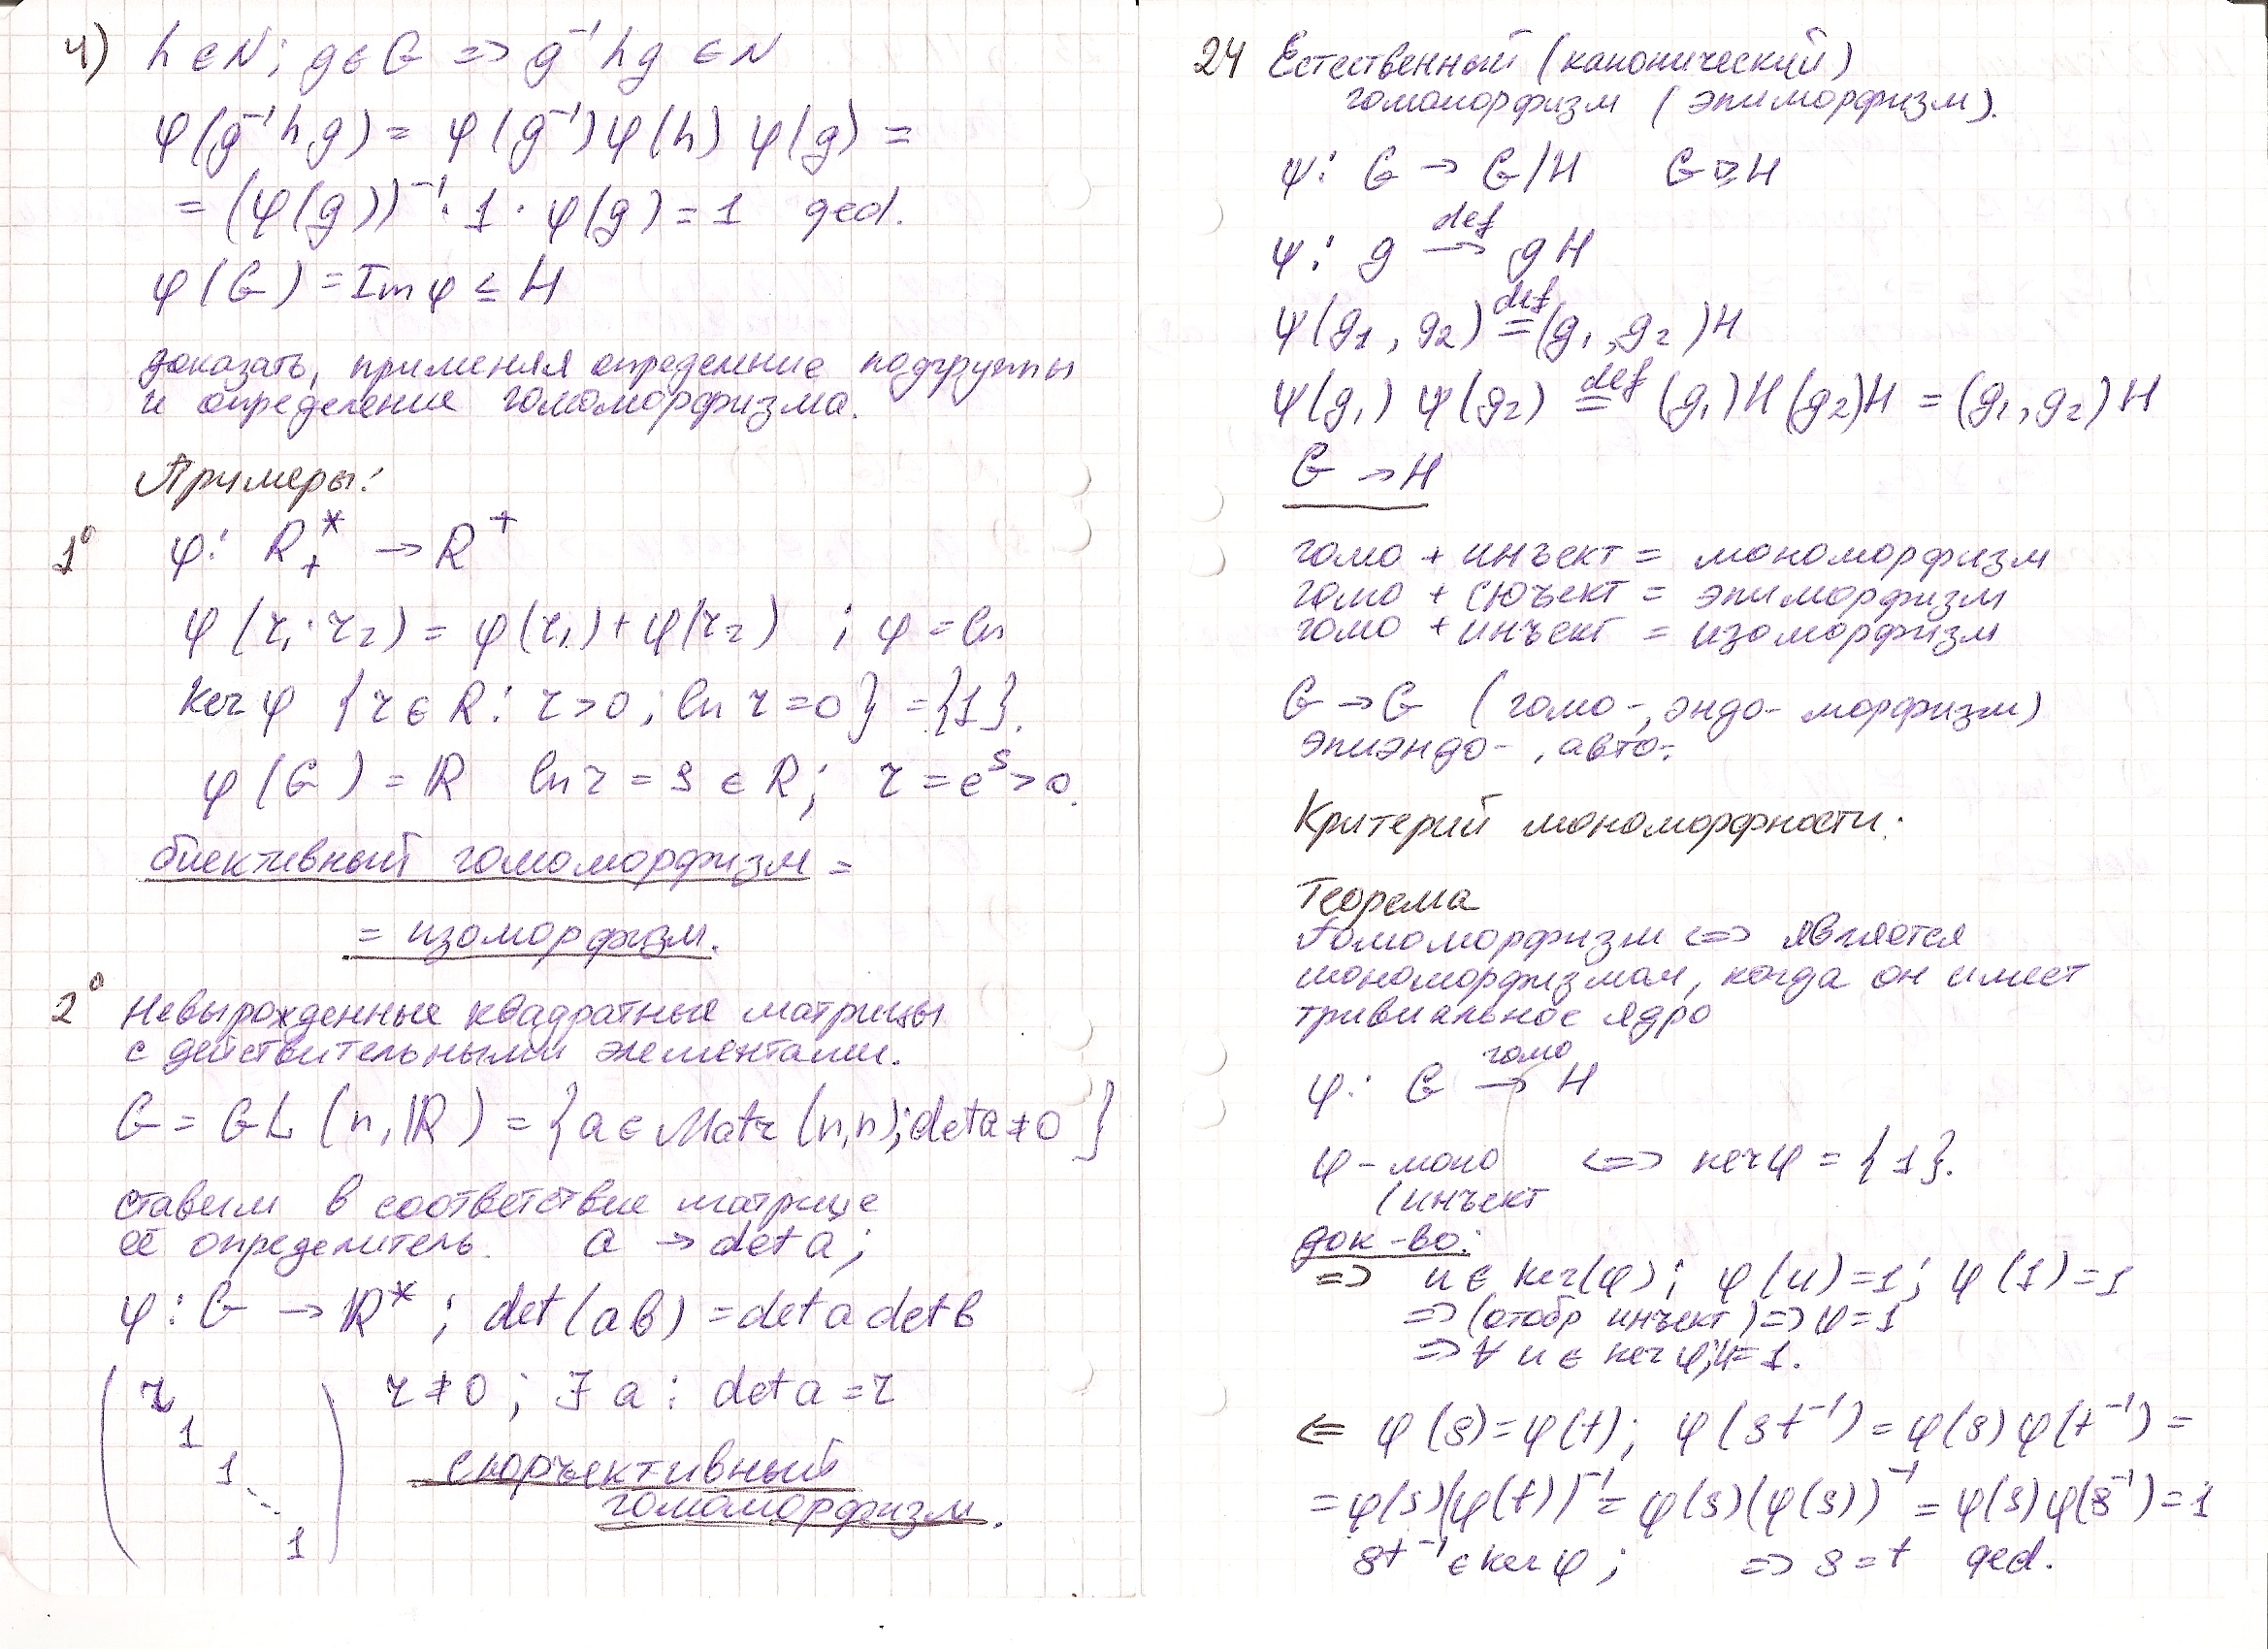 4) h ∈ N; g ∈ G => g⁻¹hg ∈ N
φ(g⁻¹hg) = φ(g⁻¹)φ(h) φ(g) =
= (φ(g))⁻¹ · 1 · φ(g) = 1 qed.
φ(G) = Im φ ≤ H
доказать, применяя определение подгруппы
и определение гомоморфизма.
Примеры:
1° φ: R₊* → R⁺
φ(r₁·r₂) = φ(r₁) + φ(r₂) ; φ = ln
Ker φ {r ∈ R: r > 0; ln r = 0} = {1}.
φ(G) = ℝ ln r = s ∈ R; r = eˢ > 0.
биективный гомоморфизм =
= изоморфизм.
2° Невырожденные квадратные матрицы
с действительными элементами.
G = GL (n, ℝ) = {a ∈ Matr (n,n); det a ≠ 0}
ставим в соответствие матрице
её определитель. a → det a;
φ: G → ℝ* ; det(ab) = det a det b
( r 1 1 ⋱ 1 ) r ≠ 0 ; ∃ a : det a = r
сюръективный
гомоморфизм.
24 Естественный (канонический)
гомоморфизм (эпиморфизм).
ψ: G → G/H G ⊵ H
ψ: g →(def) gH
ψ(g₁, g₂) =(def) (g₁, g₂)H
ψ(g₁) ψ(g₂) =(def) (g₁)H (g₂)H = (g₁, g₂)H
G → H
гомо + инъект = мономорфизм
гомо + сюъект = эпиморфизм
гомо + инъект = изоморфизм
G → G (гомо-, эндо- морфизм)
эпиэндо- , авто-.
Критерий мономорфности.
Теорема
Гомоморфизм <=> является
мономорфизмом, когда он имеет
тривиальное ядро
φ: G →(гомо) H
φ - моно <=> ker φ = {1}.
(инъект
док-во:
=> u ∈ ker(φ); φ(u) = 1; φ(1) = 1
=> (отобр инъект) => φ = 1
=> ∀ u ∈ ker φ; u = 1.
<= φ(s) = φ(t); φ(st⁻¹) = φ(s) φ(t⁻¹) =
= φ(s)(φ(t))⁻¹ = φ(s)(φ(s))⁻¹ = φ(s)φ(s⁻¹) = 1
st⁻¹ ∈ ker φ ; => s = t qed.